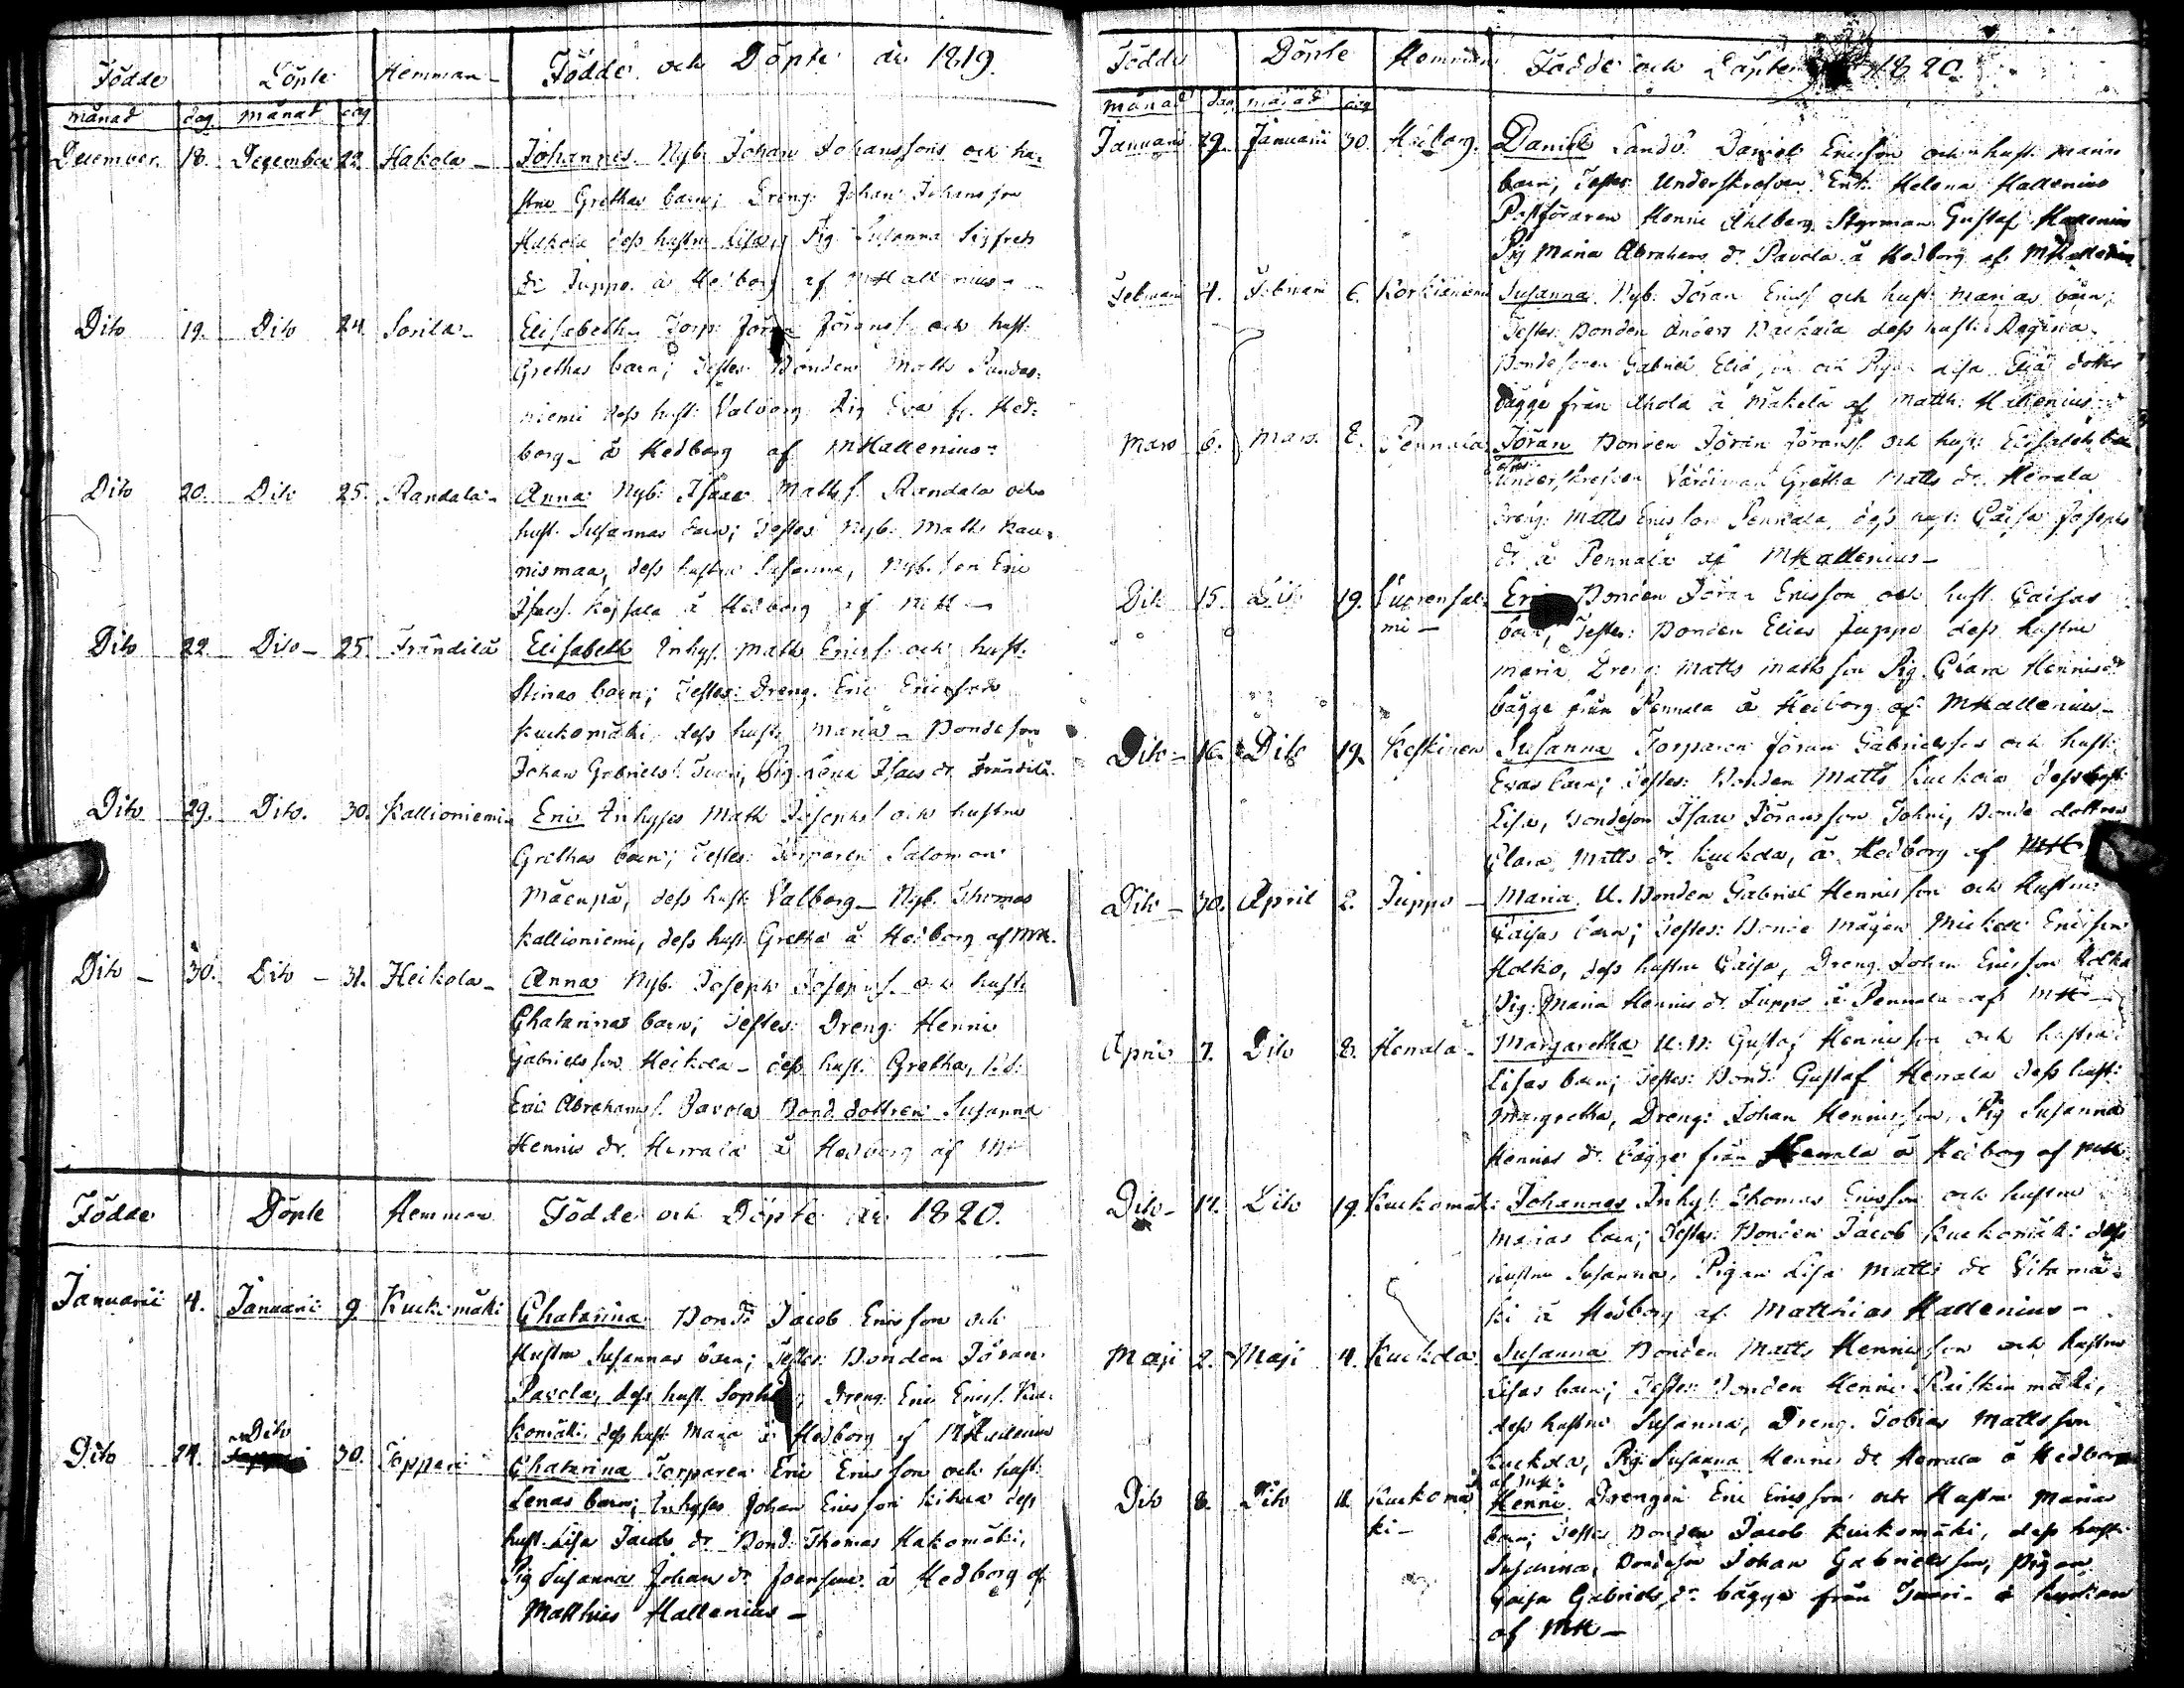 Födde Döpte Hemman Födde och Döpte år 1819.
månad dag månad dag
December 18. December 22. Hakola Johannes Nyb. Johan Johanssons och hu-
strus Grethas barn; Dreng: Johan Johansson
Hakola dess hustru Lisa, Pig. Susanna Sigfreds
dr. Juppo å Hedborg af MHallenius
Dito 19. Dito 24. Sorila Elisabeth Torp: Jöran Joranss. och hust:
Grethas barn; Testes: Bonden Matts
niemi dess hust: Valborg Pig Eva Hed-
borg å Hedborg af MHallenius
Dito 20. Dito 25. Randala Anna Nyb: Isaac Mattss. Randala och
hust. Susannas barn; Testes Nyb: Matts Kau-
nismaa, dess hustru Susanna, Nyb. son Eric
Isacs. å Hedborg af MH
Dito 22. Dito 25. Frändilä Elisabeth Inhys. Matts Ericss. och hust.
Stinas barn; Testes: Dreng. Eric Ericsson
Kuckomäki dess hust: Maria Bondeson
Johan Gabriels. Juuri, Pig. Lena Isacs dr. Frändilä.
Dito 29. Dito 30. Kallioniemi Eric Inhyses Matts Josephs. och hustru
Grethas barn; Testes: Torparen Salomon
Mäenpä, dess hust: Valborg Nyb. Thomas
Kallioniemi, dess hust. Gretha å Hedborg af MH.
Dito 30. Dito 31. Heikola Anna Nyb. Joseph Josephs. och hust:
Chatarinas barn; Testes: Dreng: Henric
Gabrielsson Heikola dess hust. Gretha,
Eric Abrahams. Pavola Bond. dottren Susanna
Henrics dr. Herrala å Hedborg af MH
Födde Döpte Hemman Födde och Döpte år 1820.
Januarii 4. Januarii 9. Kuckimäki Chatarina Bond: Jacob Ericsson och
Hustru Susannas barn; Testes: Bonden Jöran
Pavola, dess hust. Sophia; Dreng: Eric Ericss. Kuc-
komäki dess hust. Maria å Hedborg af MHallenius
Dito 24. Dito 30. Toppari Chatarina Torparen Eric Ericsson och hust:
Lenas barn; Inhyses Johan Ericsson dess
hust. Lisa Jacobs dr. Bond: Thomas Hakomäki,
Pig Susanna Johans dr. å Hedborg af
Matthias Hallenius
Födde Döpte Hemman Födde och Döpter 1820.
månad dag månad dag
Januarii 29. Januarii 30. Hedborg. Daniel Landb. Daniel Ericsson och hust. Maria
barn; Testes: Underskrefven Enk. Helena Hallenius
Postföraren Henric Ahlberg Styrman Gustaf Hallenius
Pig Maria Abrahams dr. Pavola å Hedborg af MHallenius
Februarii 4. Februarii 6. Susanna Nyb: Jöran Ericss och hust: Marias barn;
Testes: Bonden Anders dess hust: Regina
Bondesonen Gabriel Pigan Lisa dotter
bägge från Ahola å Mäkelä af Matth: Hallenius
Mars 6. Mars 8. Pennala Jöran Bonden Jöran Joranss. och hust: Elisabeths barn
Testes: Underskrefven Gretha Matts dr. Herrala
Dreng: Matts Ericsson Pennala, dess hust: Caisa Josephs
dr å Pennala af MHallenius
Dito 15. Dito 19. Eric Bonden Jöran Ericsson och hust Caisas
mi
barn; Testes: Bonden Elias Juppo dess hustru
Maria Dreng: Matts Mattsson Pig. Clara Henrics dr
bägge från Pennala å Hedborg af MHallenius
Dito 16. Dito 19. Keskinen Susanna Torparen Jöran Gabrielsson och hust:
Evas barn; Testes: Bonden Matts Kuckola dess hust:
Lisa, Bondeson Isaac Joransson Bonde dottren
Clara Matts dr. Kuckola, å Hedborg af MH
Dito 30. April 2. Juppo Maria U. Bonden Gabriel Henricsson och Hustru
Caisas barn; Testes: Bonde mågen Mickel Ericsson
Holko, dess hustru Caisa, Dreng. Johan Ericsson Holko
Pig: Maria Henrics dr. Juppo å Pennala af MH
April 7. Dito 8. Herrala Margaretha U. B: Gustaf Henricsson och hustru
Lisas barn; Testes: Bond: Gustaf Herrala dess hust:
Margretha, Dreng: Johan Henricsson, Pig Susanna
Henrics dr. bägge från Herrala å Hedborg af MH
Dito 14. Dito 19. Kuckomäki Johannes Inhys: Thomas Ericsson och hustru
Marias barn; Testes: Bonden Jacob Kuckomäki dess
hustru Susanna, Pigan Lisa Matts dr
ki å Hedborg af Matthias Hallenius
Maji 2. Maji 4. Kuckola Susanna Bonden Matts Henricsson och hustru
Lisas barn; Testes: Bonden Henric
dess hustru Susanna, Dreng. Tobias Mattsson
Kuckola, Pig: Susanna Henrics dr Herrala å Hedborg
af MH.
Dito 8. Dito 11. Kuckomä Henric Drengen Eric Ericsson och Hustru Marias
ki
barn; Testes Bonden Jacob Kuckomäki, dess hust:
Susanna, Bondeson Johan Gabrielsson, Pigan
Caisa Gabriels dr. bägge från Juuri å Kyrkan
af MH